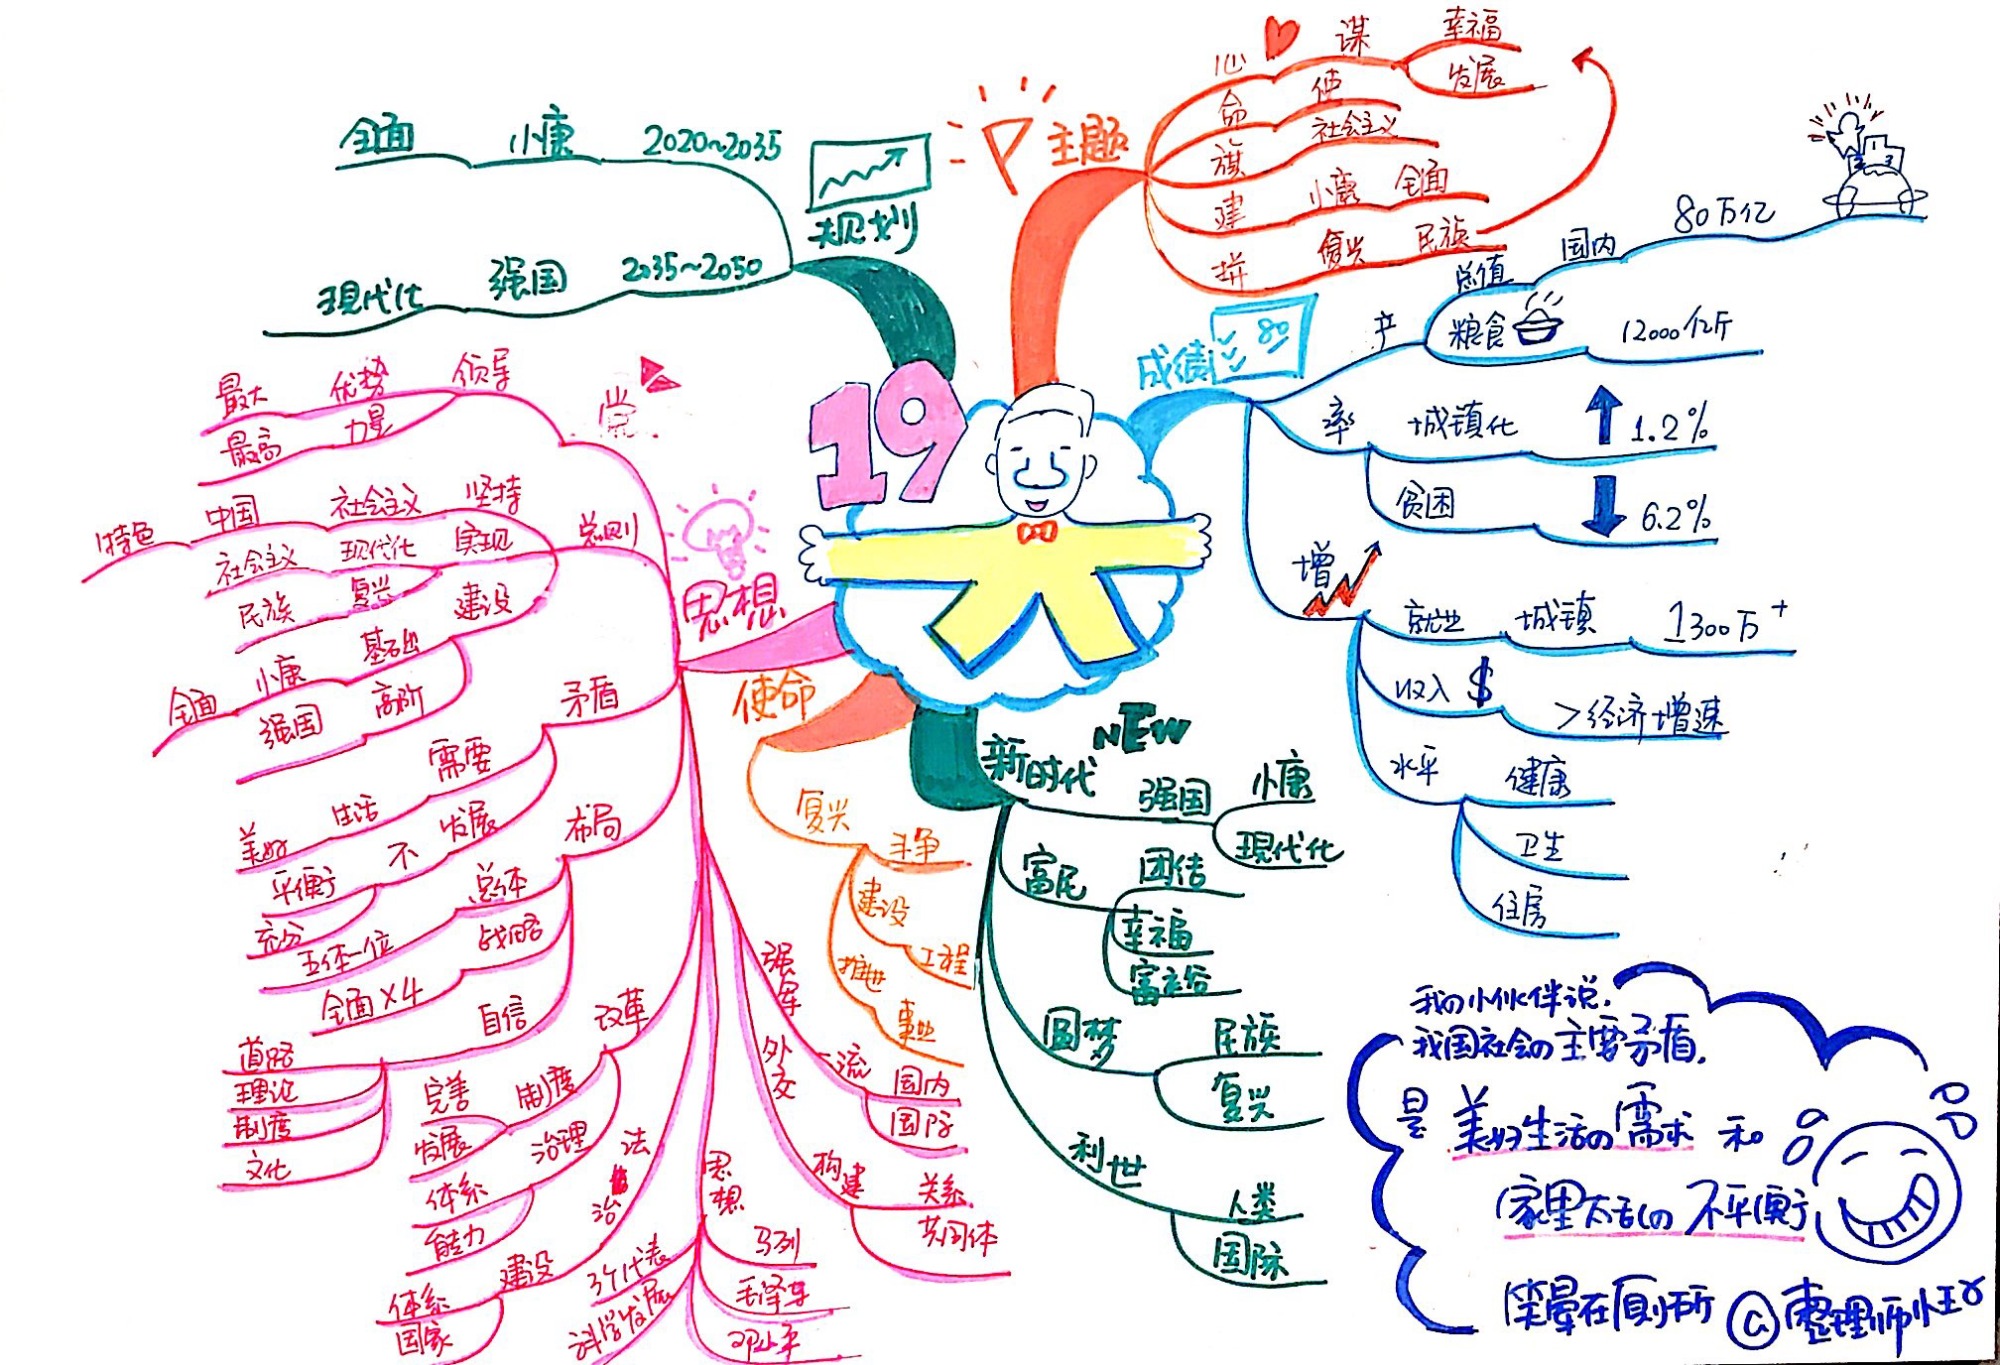 19
主题
心 谋 幸福
发展
命 使
旗 社会主义
建 小康 全面
拼 复兴 民族
成绩
80
产
总值 国内 80万亿
粮食 12000亿斤
率 城镇化 1.2%
贫困 6.2%
增
就业 城镇 1300万+
收入 $ >经济增速
水平 健康
卫生
住房
新时代 NEW
强国 小康
现代化
富民 团结
幸福
富裕
圆梦 民族
复兴
利世 人类
国际
使命
复兴 斗争
建设 工程
推进 事业
思想
党
领导 优势 最大
力量 最高
总则
坚持 社会主义 中国 特色
实现 现代化 社会主义
复兴 民族
建设 基础 小康 全面
高阶 强国
矛盾
需要 生活 美好
发展 不 平衡
充分
布局
总体 五体一位
战略 全面×4
自信 道路
理论
制度
文化
改革
制度 完善
发展
治理 体系
能力
法治
建设 体系
国家
思想
马列
毛泽东
邓小平
3个代表
科学发展
外交
构建 关系
共同体
强军
一流 国内
国际
规划
2020~2035 小康 全面
2035~2050 强国 现代化
我の小伙伴说.
我国社会の主要矛盾.
是 美好生活の需求 和
家里太乱の 不平衡
笑晕在厕所 @整理师小王